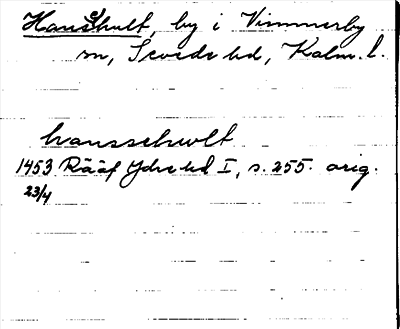 Hanshult, by i Vimmerby
sn, Sevede hd, Kalm. l.
hansschwlt
1453 Rääf Ydre hd I, s. 255. orig.
23/4